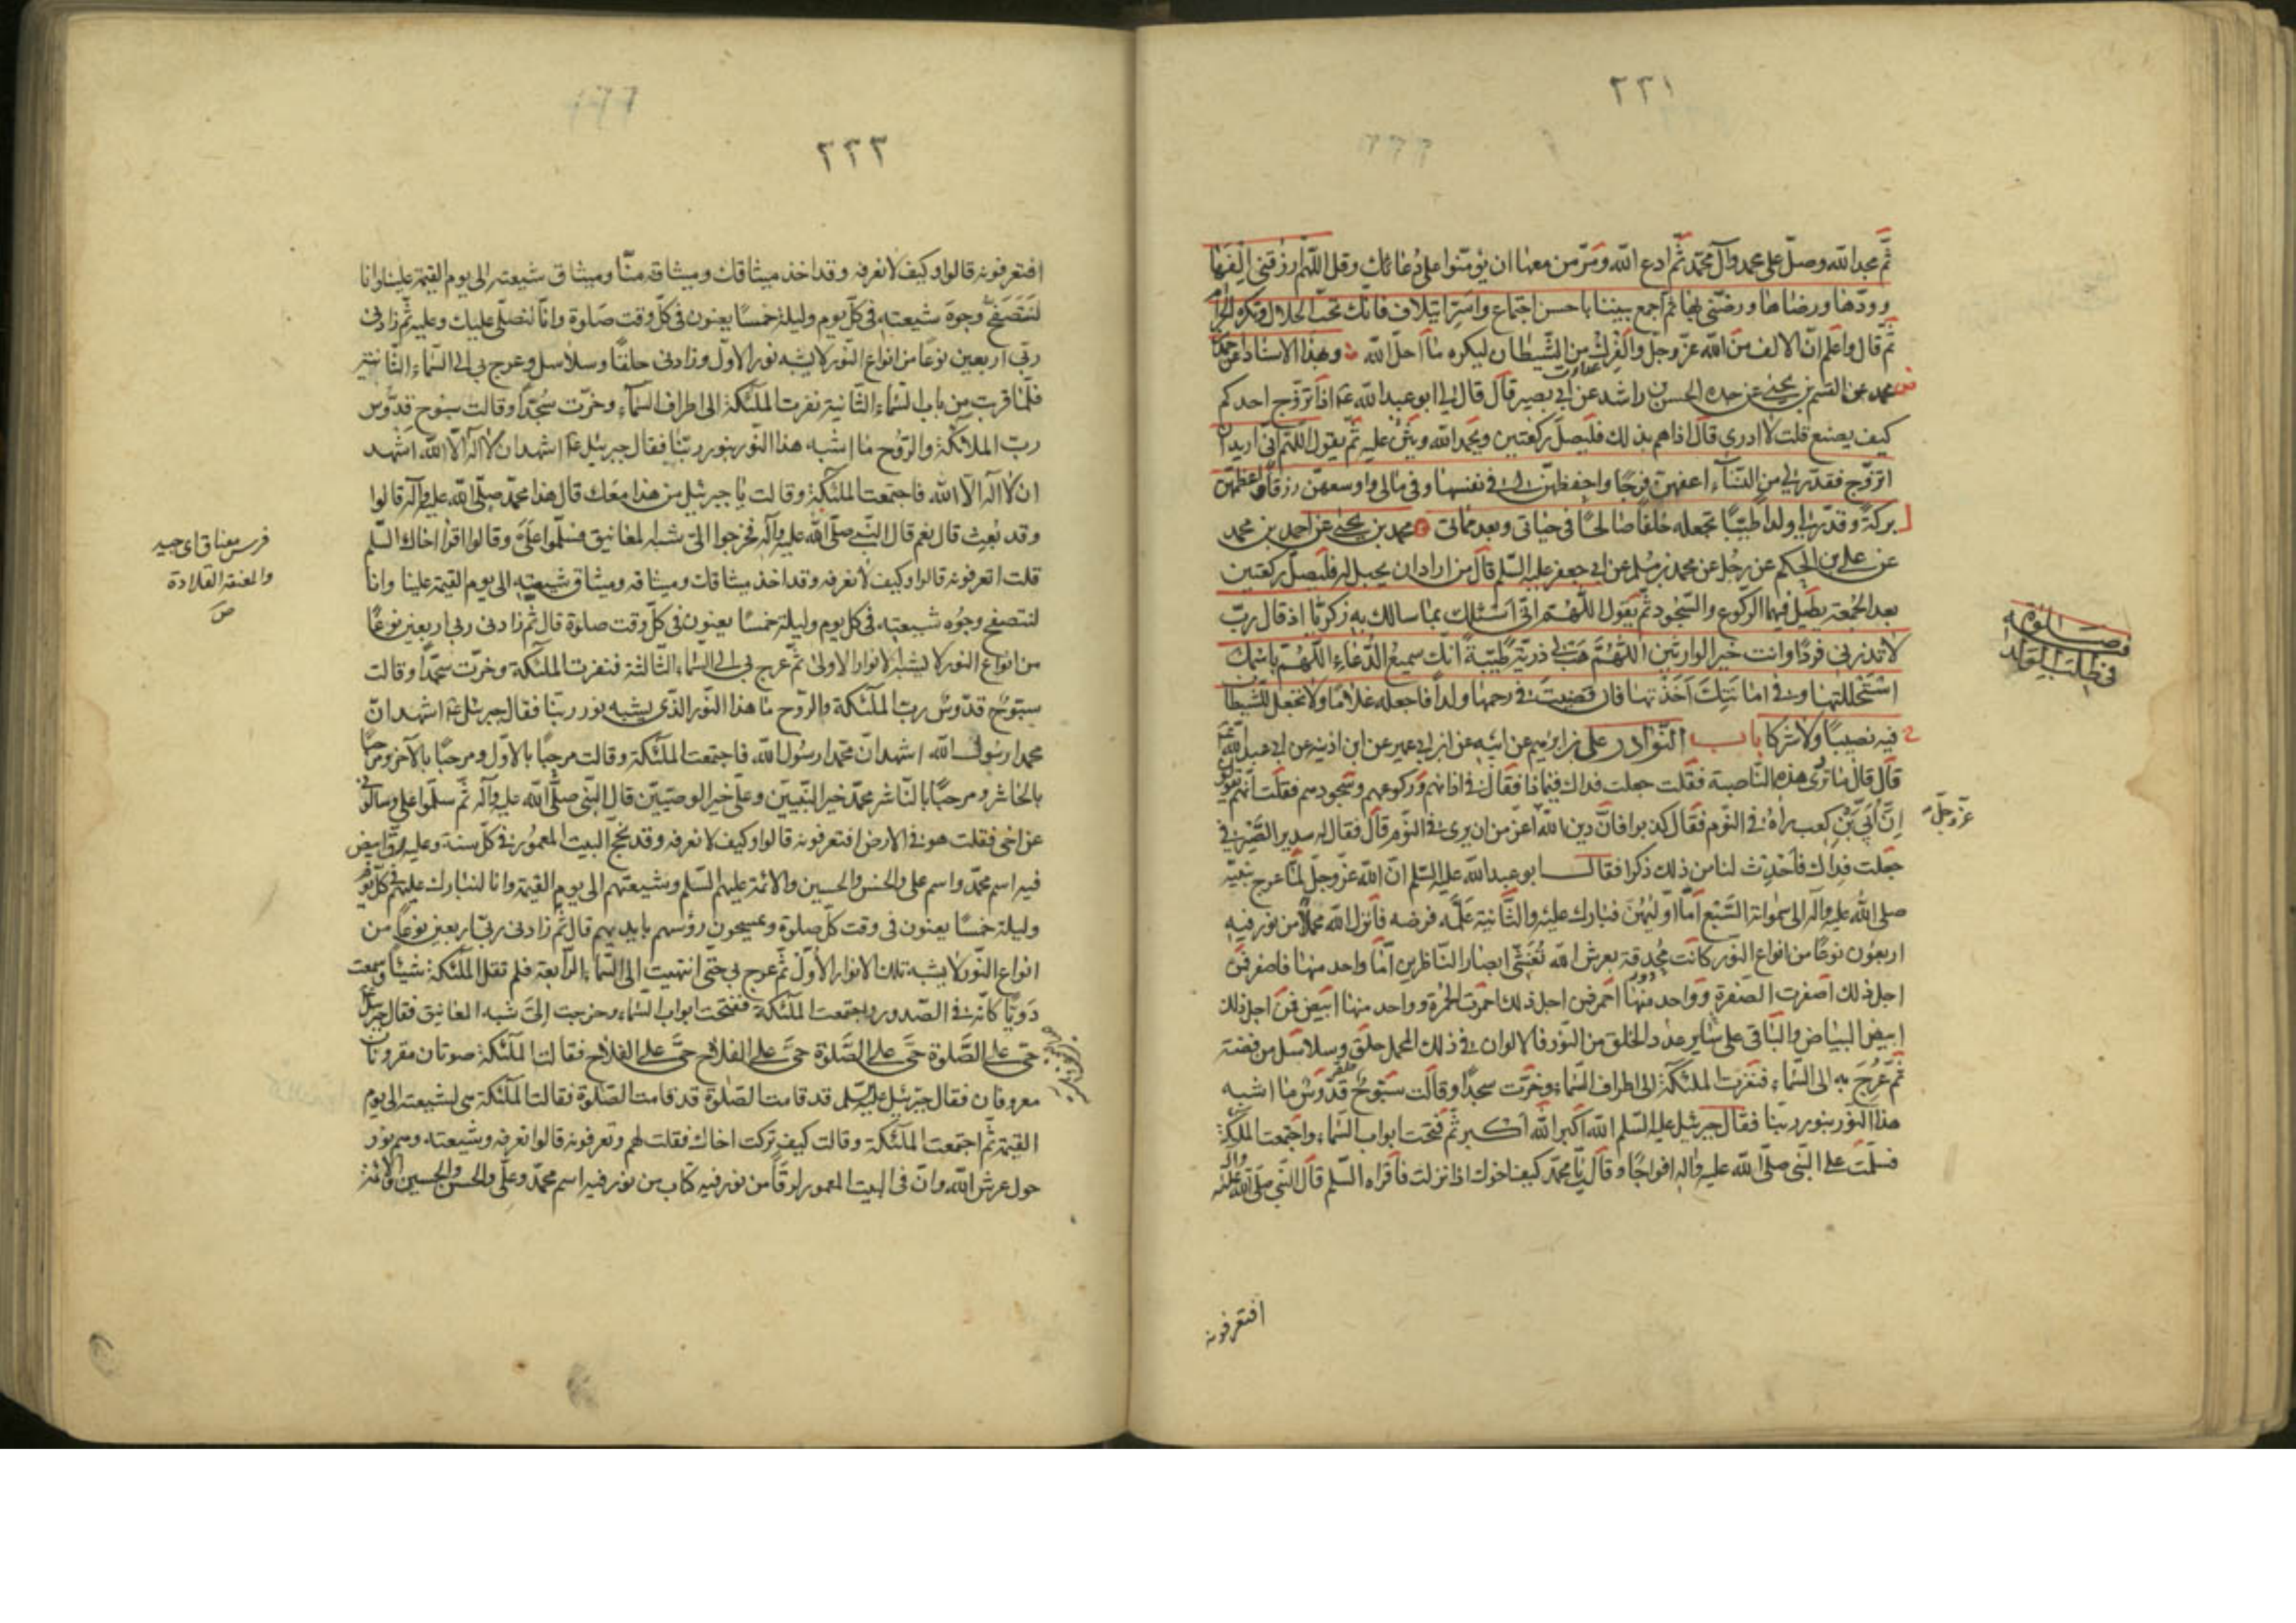 ٢٢١
ثم مجد الله وصل على محمد وآل محمد ثم ادع الله ومر من معها ان يؤمنوا على دعائك وقل اللهم ارزقني الفها
وودها ورضاها ورضني بها ثم اجمع بيننا باحسن اجتماع واسر ايتلاف فانك تحب الحلال وتكره الحرام
ثم قال واعلم ان الالف من الله عز وجل والفرك من الشيطان ليكره ما احل الله وبهذا الاسناد عن احمد
محمد عن القسم بن يحيى عن جده الحسن بن راشد عن ابي بصير قال قال لي ابو عبد الله ع اذا تزوج احدكم
كيف يصنع قلت لا ادري قال اذا هم بذلك فليصل ركعتين ويحمد الله ويثن عليه ثم يقول اللهم اني اريد ان
اتزوج فقدر لي من النساء اعفهن فرجا واحفظهن لي في نفسها وفي مالي واوسعهن رزقا واعظمهن
بركة وقدر لي ولدا طيبا تجعله خلفا صالحا في حياتي وبعد مماتي محمد بن يحيى عن احمد بن محمد
عن علي بن الحكم عن رجل عن محمد بن مسلم عن ابي جعفر عليه السلم قال من اراد ان يحبل له فليصل ركعتين
بعد الجمعة يطيل فيهما الركوع والسجود ثم يقول اللهم اني اسئلك بما سالك به زكريا اذ قال رب
لا تذرني فردا وانت خير الوارثين اللهم هب لي ذرية طيبة انك سميع الدعاء اللهم باسمك
استحللتها وفي امانتك اخذتها فان قضيت في رحمها ولدا فاجعله غلاما ولا تجعل للشيطان
فيه نصيبا ولا شركا باب النوادر علي بن ابراهيم عن ابيه عن ابن ابي عمير عن ابن اذينه عن ابي عبد الله ع
قال قال ما تروى هذه الناصبة فقلت جعلت فداك فيما ذا فقال في اذانهم وركوعهم وسجودهم فقلت انهم يقولون
ان ابي بن كعب رآه في النوم فقال كذبوا فان دين الله اعز من ان يرى في النوم قال فقال له سدير الصيرفي
عز وجل
جعلت فداك فاحدث لنا من ذلك ذكرا فقال ابو عبد الله عليه السلم ان الله عز وجل لما عرج بنبيه
صلى الله عليه وآله الى سمواته السبع اما اوليهن فبارك عليه والثانية علمه فرضه فانزل الله محملا من نور فيه
اربعون نوعا من انواع النور كانت محدقة بعرش الله تغشى ابصار الناظرين اما واحد منها فاصفر فمن
اجل ذلك اصفرت الصفرة وواحد منها احمر فمن اجل ذلك احمرت الحمرة وواحد منها ابيض فمن اجل ذلك
ابيض البياض والباقي على ساير عدد الخلق من النور فالالوان في ذلك المحمل حلق وسلاسل من فضة
ثم عرج به الى السماء فنفرت الملئكة الى اطراف السماء وخرت سجدا وقالت سبوح قدوس ما اشبه
هذا النور بنور ربنا فقال جبرئيل عليه السلم الله اكبر الله اكبر ثم فتحت ابواب السماء واجتمعت الملئكة
فسلمت على النبي صلى الله عليه وآله افواجا وقال يا محمد كيف اخوك اذا نزلت فاقراه السلم قال النبي صلى الله عليه وآله
افتعرفونه
صلوة
في طلب الولد
٢٢٢
افتعرفونه قالوا وكيف لا نعرفه وقد اخذ ميثاقك وميثاقه منا وميثاق شيعته الى يوم القيمة علينا وانا
لنتصفح وجوه شيعته في كل يوم وليلة خمسا يعنون في كل وقت صلوة وانا لنصلي عليك وعليه ثم زادني
ربي اربعين نوعا من انواع النور لا يشبه نور الاول وزادني حلقا وسلاسل وعرج بي الى السماء الثانية
فلما قربت من باب السماء الثانية نفرت الملئكة الى اطراف السماء وخرت سجدا وقالت سبوح قدوس
رب الملائكة والروح ما اشبه هذا النور بنور ربنا فقال جبرئيل ع اشهد ان لا اله الا الله اشهد
ان لا اله الا الله فاجتمعت الملئكة وقالت يا جبرئيل من هذا معك قال هذا محمد صلى الله عليه وآله قالوا
وقد بعث قال نعم قال النبي صلى الله عليه وآله فخرجوا الي شبه المعانيق فسلموا علي وقالوا اقرا اخاك السلم
قلت اتعرفونه قالوا وكيف لا نعرفه وقد اخذ ميثاقك وميثاقه وميثاق شيعته الى يوم القيمة علينا وانا
لنتصفح وجوه شيعته في كل يوم وليلة خمسا يعنون في كل وقت صلوة قال ثم زادني ربي اربعين نوعا
من انواع النور لا يشبه الانوار الاولى ثم عرج بي الى السماء الثالثة فنفرت الملئكة وخرت سجدا وقالت
سبوح قدوس رب الملئكة والروح ما هذا النور الذي يشبه نور ربنا فقال جبرئيل ع اشهد ان
محمدا رسول الله اشهد ان محمدا رسول الله فاجتمعت الملئكة وقالت مرحبا بالاول ومرحبا بالآخر ومرحبا
بالحاشر ومرحبا بالناشر محمد خير النبيين وعلي خير الوصيين قال النبي صلى الله عليه وآله ثم سلموا علي وسالوني
عن اخي فقلت هو في الارض افتعرفونه قالوا وكيف لا نعرفه وقد نحج البيت المعمور في كل سنة وعليه رق ابيض
فيه اسم محمد واسم علي والحسن والحسين والائمة عليهم السلم وشيعتهم الى يوم القيمة وانا لنبارك عليهم في كل يوم
وليلة خمسا يعنون في وقت كل صلوة ويمسحون رؤسهم بايديهم قال ثم زادني ربي اربعين نوعا من
انواع النور لا يشبه تلك الانوار الاول ثم عرج بي حتى انتهيت الى السماء الرابعة فلم تقل الملئكة شيئا وسمعت
دويا كانه في الصدور واجتمعت الملئكة ففتحت ابواب السماء وخرجت الي شبه المعانيق فقال جبرئيل ع
حي على الصلوة حي على الصلوة حي على الفلاح حي على الفلاح فقالت الملئكة صوتان مقرونان
معروفان فقال جبرئيل عليه السلم قد قامت الصلوة قد قامت الصلوة فقالت الملئكة هي لشيعته الى يوم
القيمة ثم اجتمعت الملئكة وقالت كيف تركت اخاك فقلت لهم وتعرفونه قالوا نعرفه وشيعته وهم نور
حول عرش الله وان في البيت المعمور لرقا من نور فيه كتاب من نور فيه اسم محمد وعلي والحسن والحسين والائمة
فرس معناق اي جيد
والمعنقة القلادة
ص